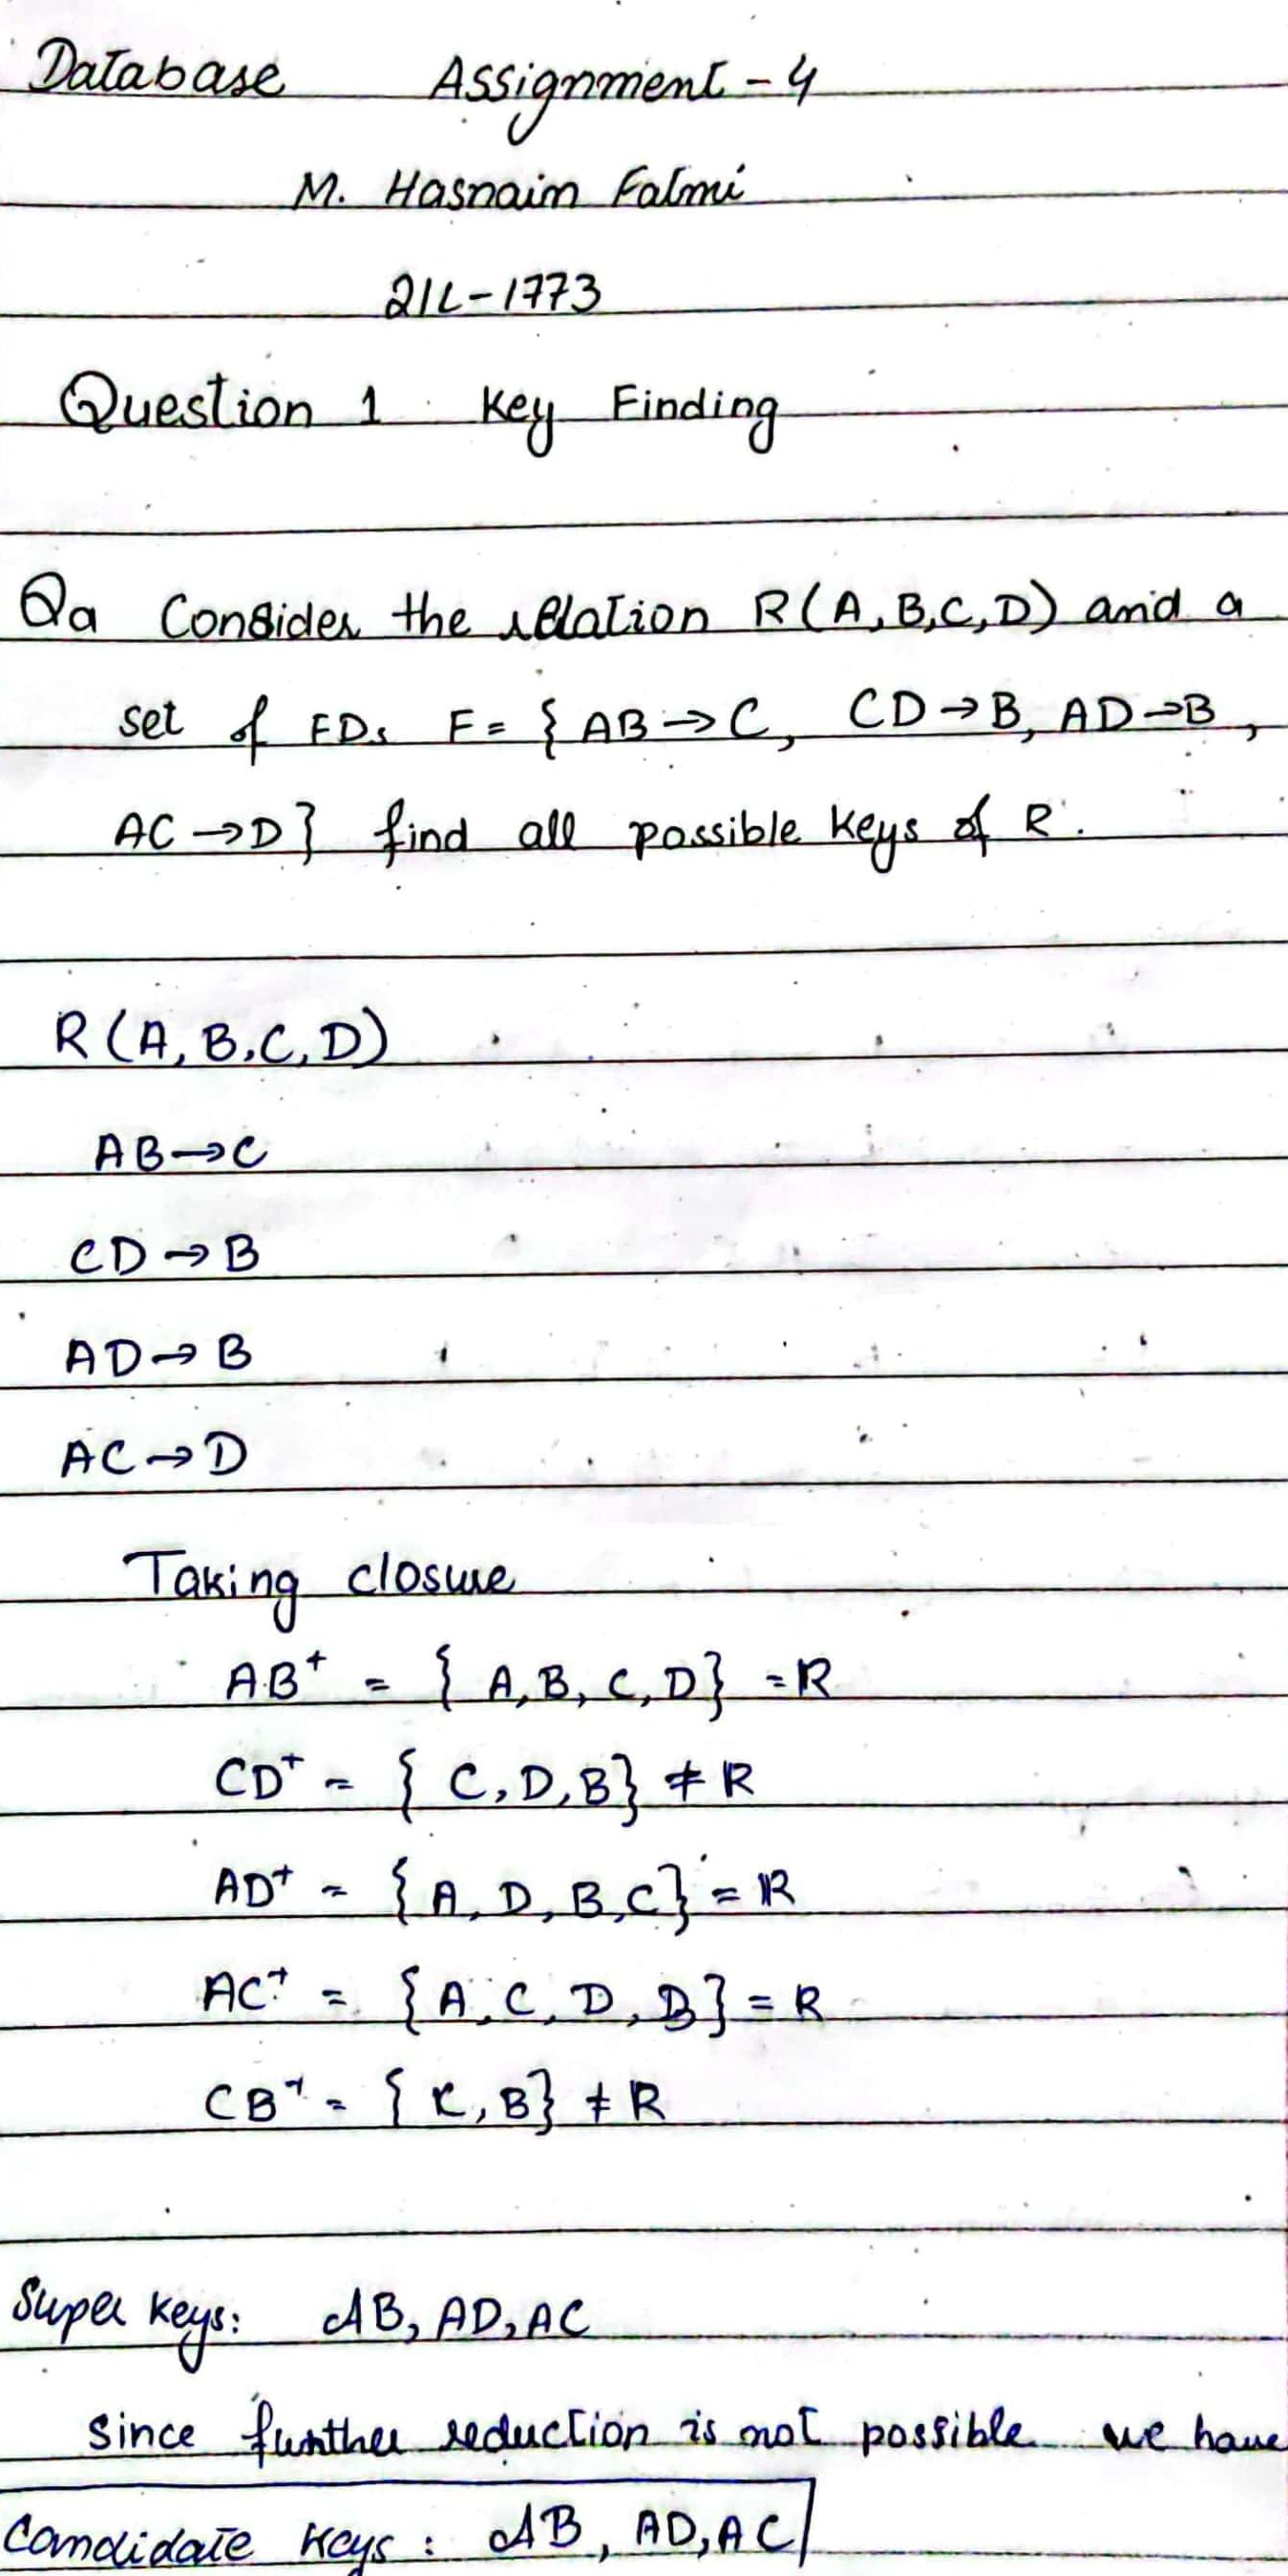 Database Assignment - 4
M. Hasnain Fatmi
21L-1773
Question 1 Key Finding
Qa Consider the relation R(A,B,C,D) and a
set of FDs F= { AB→C, CD→B, AD→B,
AC→D} find all possible keys of R.
R(A,B,C,D)
AB→C
CD→B
AD→B
AC→D
Taking closure
AB⁺ = { A,B,C,D} =R
CD⁺ = { C,D,B} ≠ R
AD⁺ = {A,D,B,C} = R
AC⁺ = {A,C,D,B} = R
CB⁺ = { C,B} ≠ R
Super keys: AB, AD, AC
Since further reduction is not possible we have
Candidate keys : AB, AD, AC